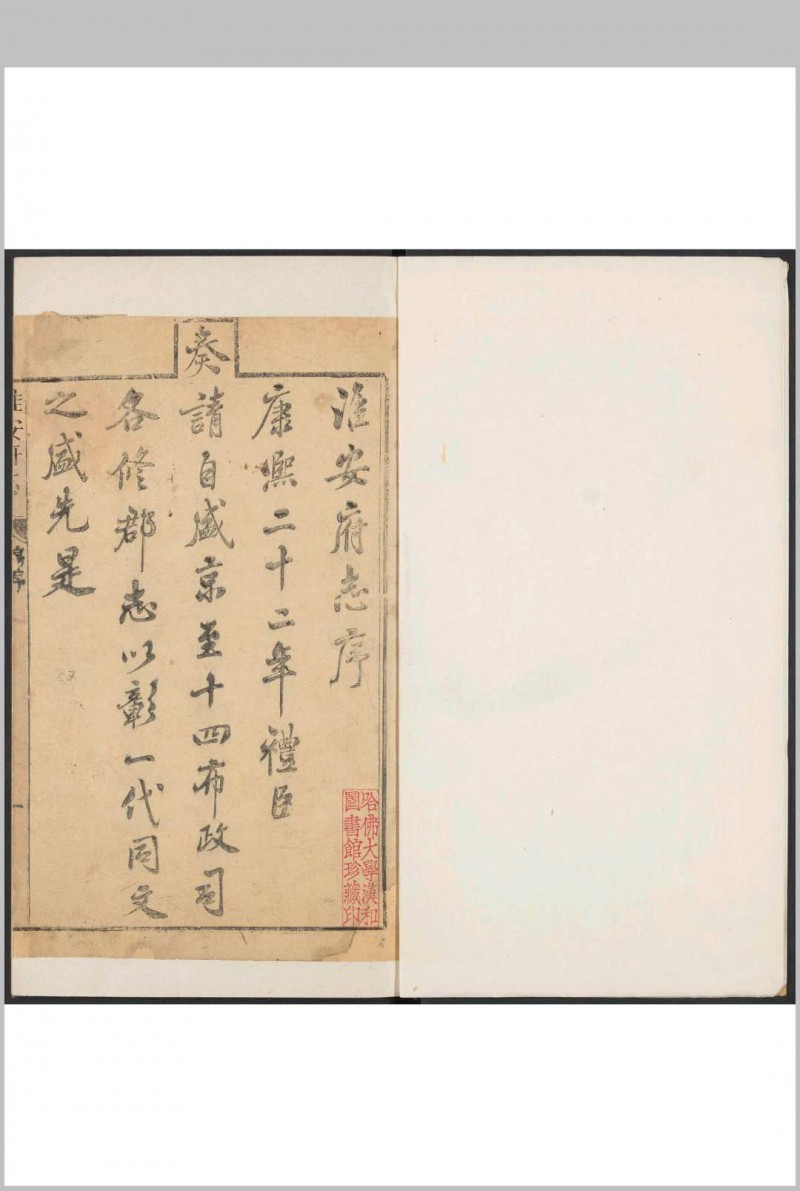 淮安府志序
康熙二十二年禮臣
奏
請自盛京至十四布政司
各修郡志以彰一代同文
之盛先是
哈佛大學漢和
圖書館珍藏印